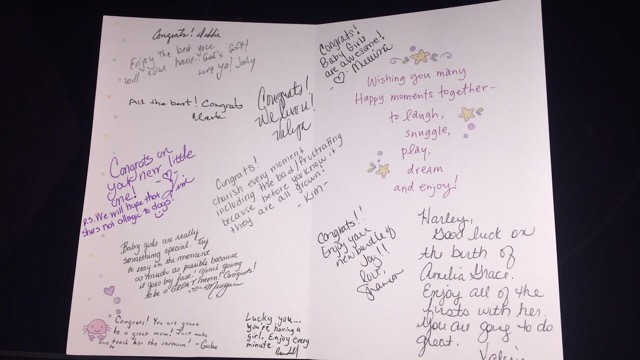 Congrats! Debbie
Enjoy the best you
will ever have - God's Gift!
Love ya! Joby
All the best! Congrats
Mark
Congrats!
We love u!
Congrats on
your new little
one!
P.S. We will hope that
she's not allergic to dogs.
Congrats!
cherish every moment
including the bad/frustrating
because before you know it
they are all grown!
- Kim -
Baby girls are really
something special. Try
to stay in the moment
as much as possible because
it goes by fast. Your going
to be a GREAT mom! Congrats!
Congrats! You are gonna
be a great mom! Just make
sure teach her the
Lucky you...
you're having a
girl. Enjoy every
minute
Congrats!
Baby Girls
are awesome!
Wishing you many
Happy moments together-
to laugh,
snuggle,
play,
dream
and enjoy!
Congrats!!
Enjoy your
new bundle of
Joy!!
Love,
Shannon
Harley,
Good luck on
the birth of
Amelia Grace.
Enjoy all of the
firsts with her.
You are going to do
great.